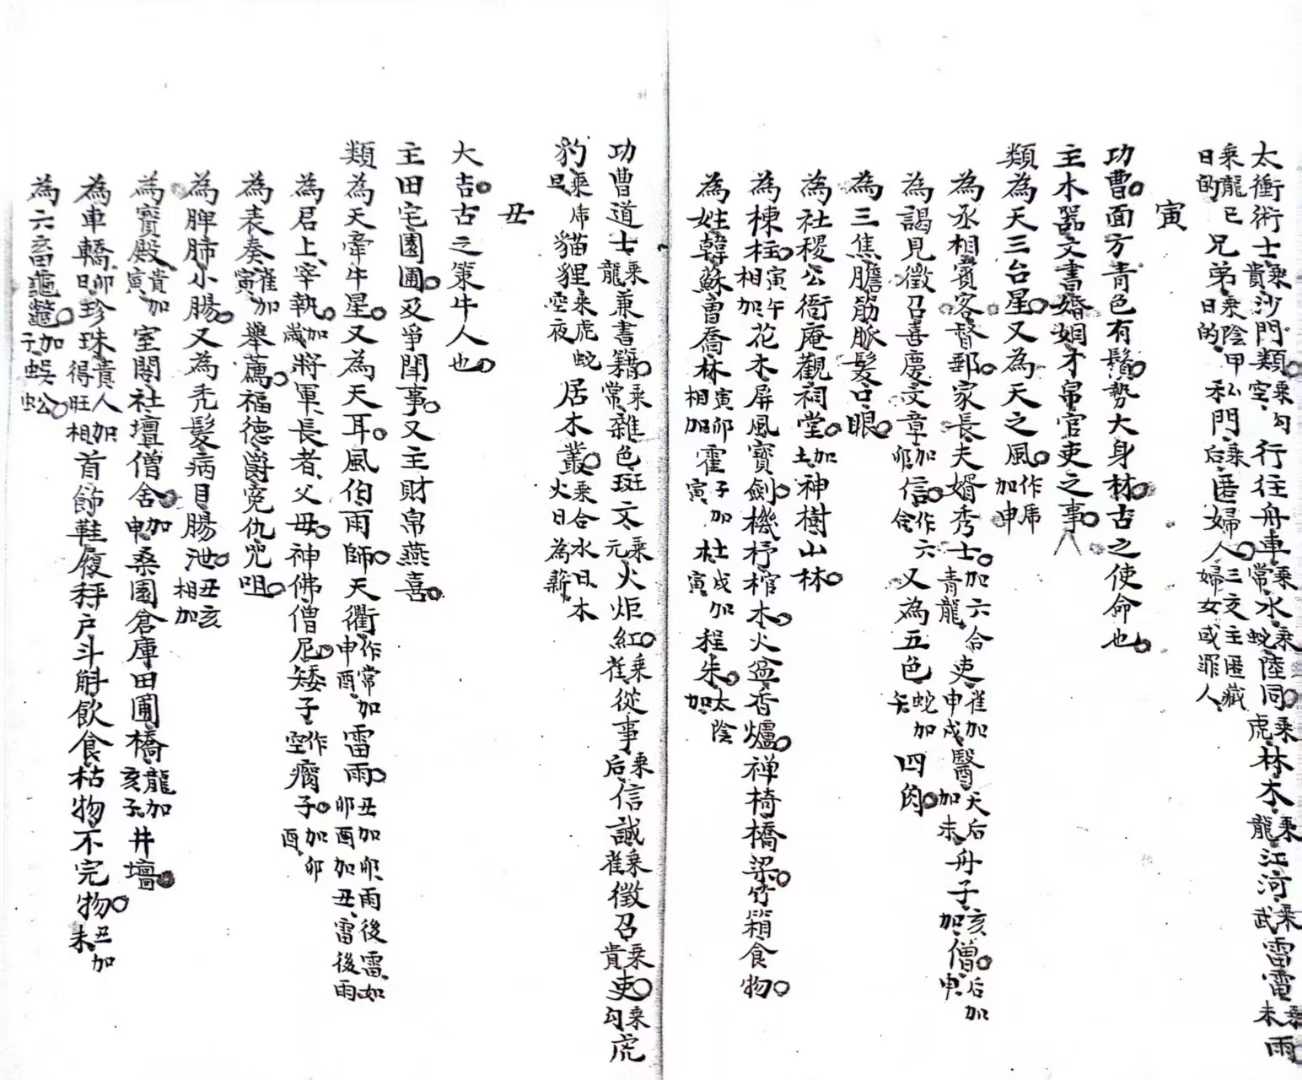 太衝術士乘貴沙門類乘勾空行往舟車乘常水乘蛇陸同乘虎林木乘龍江河乘武雷電乘未雨
乘龍巳日的兄弟乘陰甲日的私門乘后匿婦人三交主匿藏婦女或罪人
寅
功曹面方青色有鬚勢大身材古之使命也
主木器文書婚姻才帛官吏之事
類為天三台星又為天之風作虎加申
為丞相賓客督郵家長夫婿秀士加六合青龍吏雀加申戌醫天后加未舟子亥加僧后加申
為謁見徵召喜慶文章加卯信作六合又為五色蛇加四肉
為三焦膽筋脈髮口眼
為社稷公衙庵觀祠堂加土神樹山林
為棟柱寅午相加花木屏風寶劍機杼棺木火盆香爐禅椅橋梁竹箱食物
為姓韓蘇曹喬林寅卯相加霍子加寅杜戌加寅程朱太陰加
功曹道士乘龍兼書籍乘常雜色斑文乘元火炬紅乘雀從事乘后信誠乘雀徵召乘貴吏乘勾虎
豹乘虎旦貓狸乘虎蛇空夜居木叢乘合水日木火日為薪
丑
大吉古之策牛人也
主田宅園圃及爭閗事又主財帛燕喜
類為天牽牛星又為天耳風伯雨師天衢作常加申酉雷雨丑加卯雨後雷如卯酉加丑雷後雨
為君上宰執加歲將軍長者父母神佛僧尼矮子作空瘸子加卯酉
為表奏雀加寅舉薦福德爵寃仇咒咀
為脾肺小腸又為禿髮病目腸泄丑亥相加
為寶殿貴加寅室閣社壇僧舍加申桑園倉庫田圃橋龍加亥子井壇
為車轎卯日珍珠貴人加得旺相首飾鞋履秤户斗斛飲食枯物不完物丑加未
為六畜龜鼈加子蜈蚣